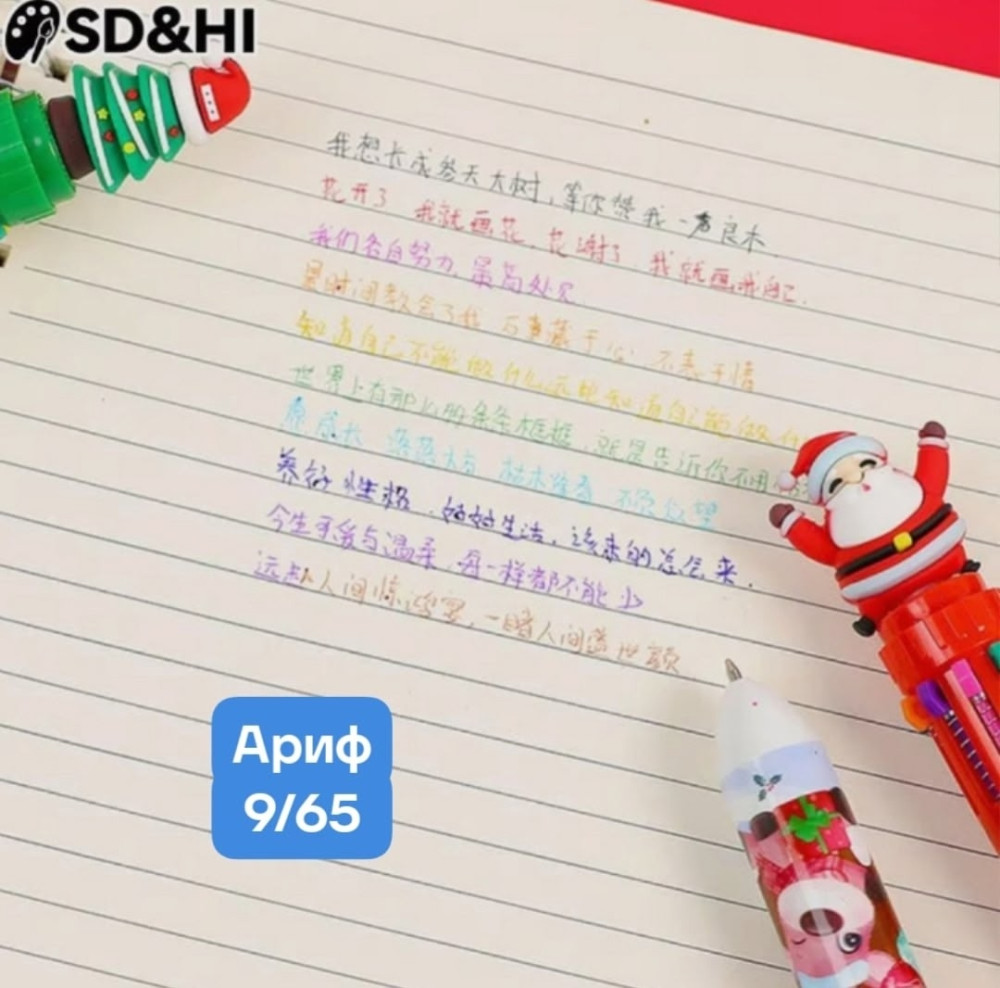 SD&HI
我想长成参天大树,等你赞我一声良木.
花开了 我就画花.花谢了 我就画我自己.
我们各自努力 最高处见
是时间教会了我 万事藏于心 不表于情
知道自己不能做什么远比知道自己能做什
世界上有那么的条条框框.就是告诉你不用
愿成长 落落大方 枯木逢春 不负众望
养好性格.好好生活,该来的总会来.
今生可爱与温柔.每一样都不能少
远赴人间惊鸿宴,一睹人间盛世颜
Ариф
9/65